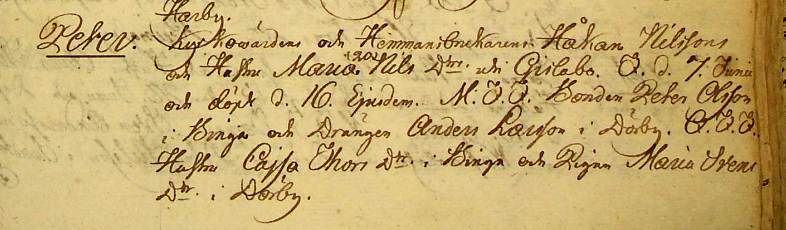 Harby.
Peter. Kyrkowärdens och Hemmansbrukarens Håkan Nilssons
och Hustru Maria Nils Dtrs. uti Grslabo. F. d. 7. Junii
och döpt d. 16. Ejusdem. M. F. F. Bonden Peter Olsson
i Binga och Drängen Anders Larsson i Dörby. Q. F. F.
Hustru Cajsa Thors Dtr. i Binga och Pigan Maria Svens
Dtr. i Dörby.